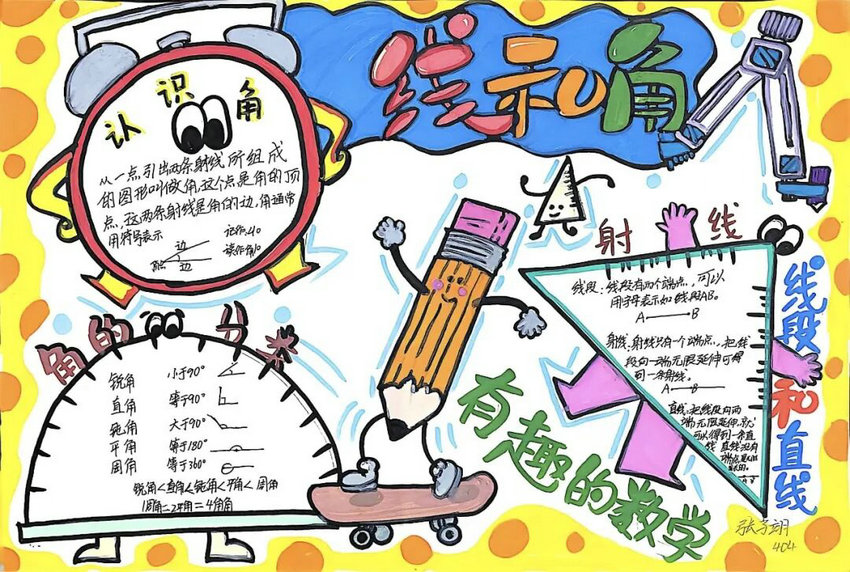 线和角
认识角
从一点引出两条射线所组成
的图形叫做角,这个点是角的顶
点,这两条射线是角的边,角通常
用符号表示
记作:∠1
读作:角1
边
顶点
边
射线
线段和直线
线段:线段有两个端点,可以
用字母表示如线段AB。
A B
射线:射线只有一个端点,把线
段向一端无限延伸可得
到一条射线。
A B
直线:把线段向两
端无限延伸,就
可以得到一条直
线 直线没有
端点
角的分类
锐角 小于90°
直角 等于90°
钝角 大于90°
平角 等于180°
周角 等于360°
锐角<直角<钝角<平角<周角
1周角=2平角=4直角
有趣的数学
404